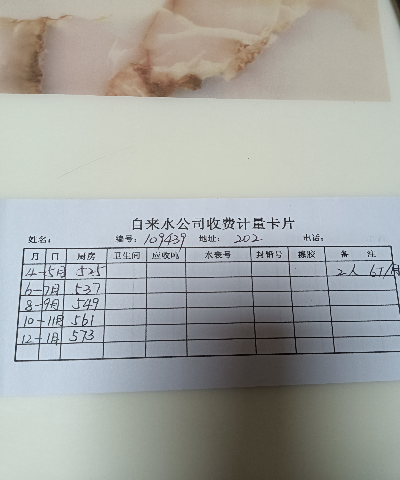 自来水公司收费计量卡片
姓名: 编号: 109439 地址: 202 电话:
月 日 厨房 卫生间 应收吨 水表号 封铅号 橡胶 备 注
4-5月 525 2人 6T/月
6-7月 537
8-9月 549
10-11月 561
12-1月 573